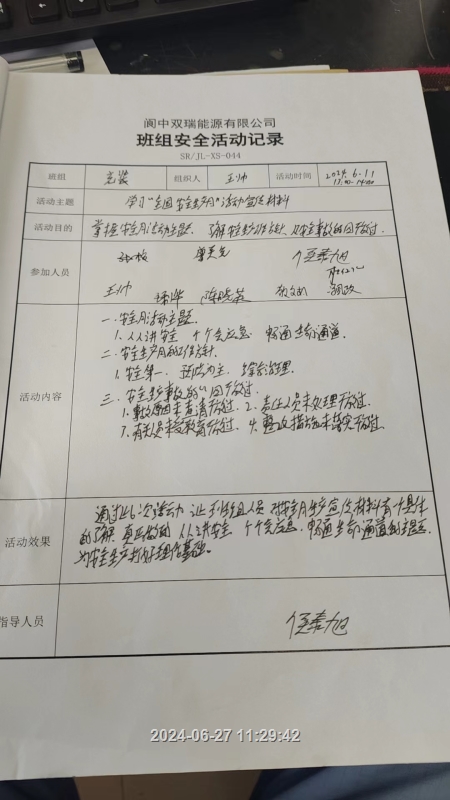 阆中双瑞能源有限公司
班组安全活动记录
SR/JL-XS-044
班组 充装 组织人 王帅 活动时间 2024.6.11
活动主题 学习“全国安全生产月”活动宣传材料
活动目的 掌握安全月活动主题、了解安全工作方针、及安全事故的四不放过.
参加人员
王帅 陈晓英
活动内容
一.安全月活动主题.
1.人人讲安全 个个会应急 畅通生命通道.
二.安全生产月的工作方针.
1.安全第一. 预防为主. 综合治理.
三.安全生产事故的“四不放过.
1.事故原因未查清不放过. 2.责任人员未处理不放过.
3.有关人员未受教育不放过. 4.整改措施未落实不放过.
活动效果
通过此次活动 让班组人员 对安全月生产宣传材料有个具体
的了解 真正做到 人人讲安全 个个会应急. 畅通生命通道的主题.
为安全生产打好理论基础.
指导人员
2024-06-27 11:29:42